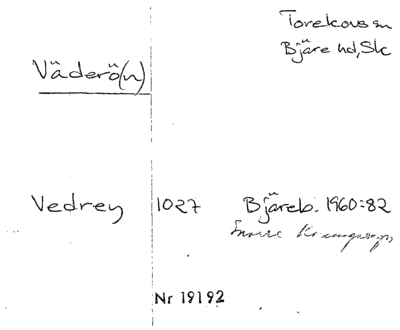 Torekovs sn
Bjäre hd, Sk
Väderö(n)
Vedrey 1027 Bjäreb. 1960:82
Snorre
Nr 19192